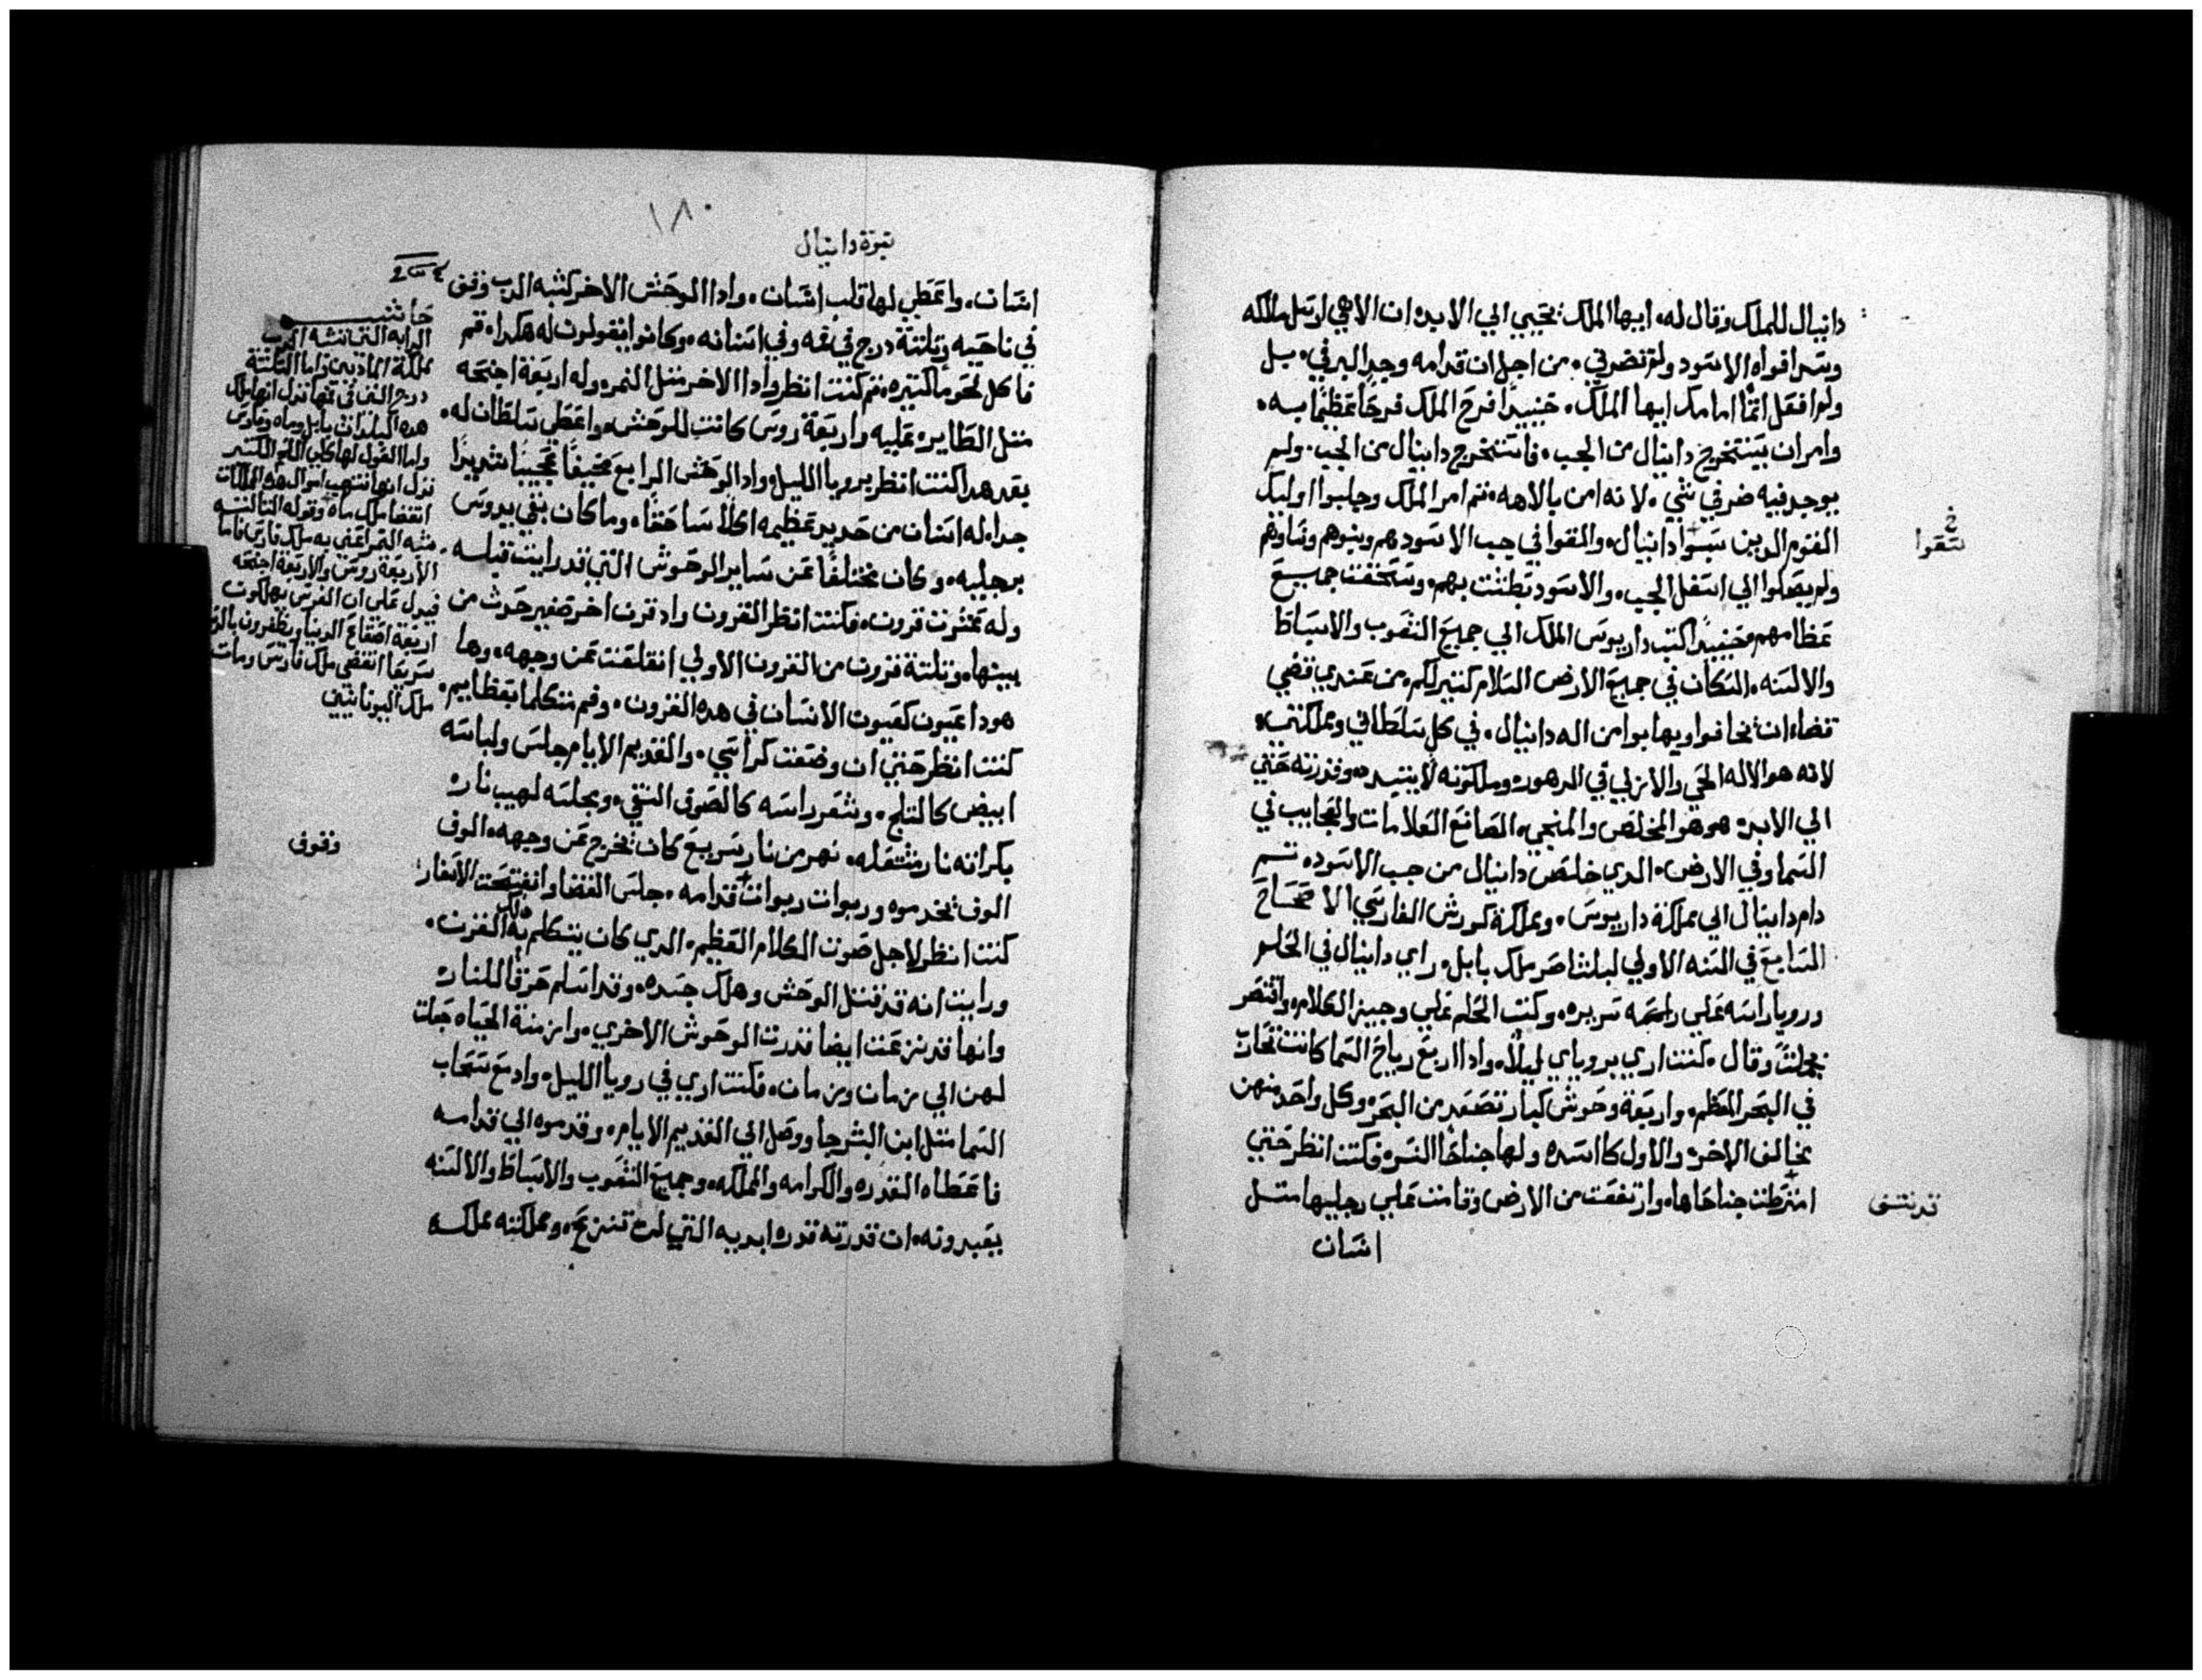 دانيال للملك وقال له. ايها الملك تحيي الي الابد. ان الاهي ارسل ملاكه
وسد افواه الاسود ولم تضرني. من اجل ان قدامه وجد البر في. بل
ولم افعل اثمًا امامك ايها الملك. حنييدًا فرح الملك فرحًا عظيمًا به.
وامر ان يستخرج دانيال من الجب. فاستخرج دانيال من الجب. ولم
يوجد فيه ضر في شي. لانه امن بالاهه. تم امر الملك وجلبوا اوليك
القوم الدين سبوا دانيال. والقوا في جب الاسود هم وبنوهم ونساوهم
خ
سعوا
ولم يصلوا الي اسفل الجب. والاسود بطشت بهم. وسحقت جميع
عظامهم. حنييدًا كتب داريوس الملك الي جميع الشعوب والاسباط
والالسنه. السكان في جميع الارض السلام كتير لكم. من عندي قضي
قضاء ان يخافوا ويهابوا من اله دانيال. في كل سلطاني ومملكتي.
لانه هو الاله الحي والازلي في الدهور. وملكوته لا يتبدد. وقدرته حتي
الي الابد. هو هو المخلص والمنجي. الصانع العلامات والعجايب في
السما وفي الارض. الدي خلص دانيال من جب الاسود. تم
دام دانيال الي مملكة داريوس. ومملكة كورش الفارسي الاصحاح
السابع في السنه الاولي لبلشاصر ملك بابل. راي دانيال في الحلم
ورويا راسه علي سريره. وكتب الحلم علي وجيز الكلام. واقتصر
بجملتًا وقال. كنت اري بروياي ليلًا. وادا اربع رياح السما كانت تحارب
في البحر العظيم. واربعة وحوش كبار تصعد من البحر. وكل واحد منهن
يخالف الاخر. والاول كاسده. ولها جناحا النسر. فكنت انظر حتي
امترطت جناحاها. وارتفعت من الارض وقامت علي رجليها متل
انسان
١٨٠
نبوة دانيال
انسان. واعطي لها قلب انسان. وادا الوحش الاخر كشبه الدب وقف
في ناحيه وتلتة درج في فمه وفي اسنانه. وكانوا يقولون له هكدا. قم
فاكل لحومًا كتيره. تم كنت انظر وادا الاخر متل النمر. وله اربعة اجنحه
متل الطاير. عليه واربعة روس كانت للوحش. واعطي سلطان له.
بعد هدا كنت انظر برويا الليل. وادا الوحش الرابع مخيفًا عجيبًا شديدًا
جدا. له اسنان من حديد عظيمه اكلًا ساحقًا. وما كان بقي يدوس
برجليه. وكان مختلفًا عن ساير الوحوش التي قد رايت قبله.
وله عشرت قرون. فكنت انظر القرون وادا قرن اخر صغير حدث من
بينها. وتلتة قرون من القرون الاولي انقلعت عن وجهه. وها
هودا عيون كعيون الانسان في هده القرون. وفم متكلما بعظايم.
كنت انظر حتي ان وضعت كراسي. والقديم الايام جلس ولباسه
ابيض كالتلج. وشعر راسه كالصوف النقي. وعجلته لهيب نار.
بكراته نار مشتعله. نهر من نار سريع كان يخرج عن وجهه. الوف
الوف يخدموه وربوات ربوات قدامه. جلس القضا وانفتحت الاسفار.
وقوف
كنت انظر لاجل صوت الكلام العظيم. الدي كان يتكلم به دلك القرن.
ورايت انه قد قتل الوحش وهلك جسده. وقد اسلم حرقًا للنار.
وانها قد نزعت ايضا قدرت الوحوش الاخري. وازمنة الحياه جعلت
لهن الي زمان وزمان. فكنت اري في رويا الليل. وادا مع سحاب
السما متل ابن البشر جا ووصل الي القديم الايام. وقدموه الي قدامه
فاعطاه القدره والكرامه والمملكه. وجميع الشعوب والاسباط والالسنه
يعبدونه. ان قدرته قدره ابديه التي لن تنزع. ومملكته مملكة
حاشيه
الدابه التي تشبه الدب
مملكة الماديين واما التلتة
درج التي في فمها تدل انها ملك
هده البلدان بابل وماه وفارس
واما القول لها كلي اللحم الكتير
تدل انها تنتهب اموال هده الممالك
الاربعة روس والاربعة اجنحه
فيدل علي ان الفرس يهلكون
سريعا انقضي ملك فارس ومات
ملك اليونانيين